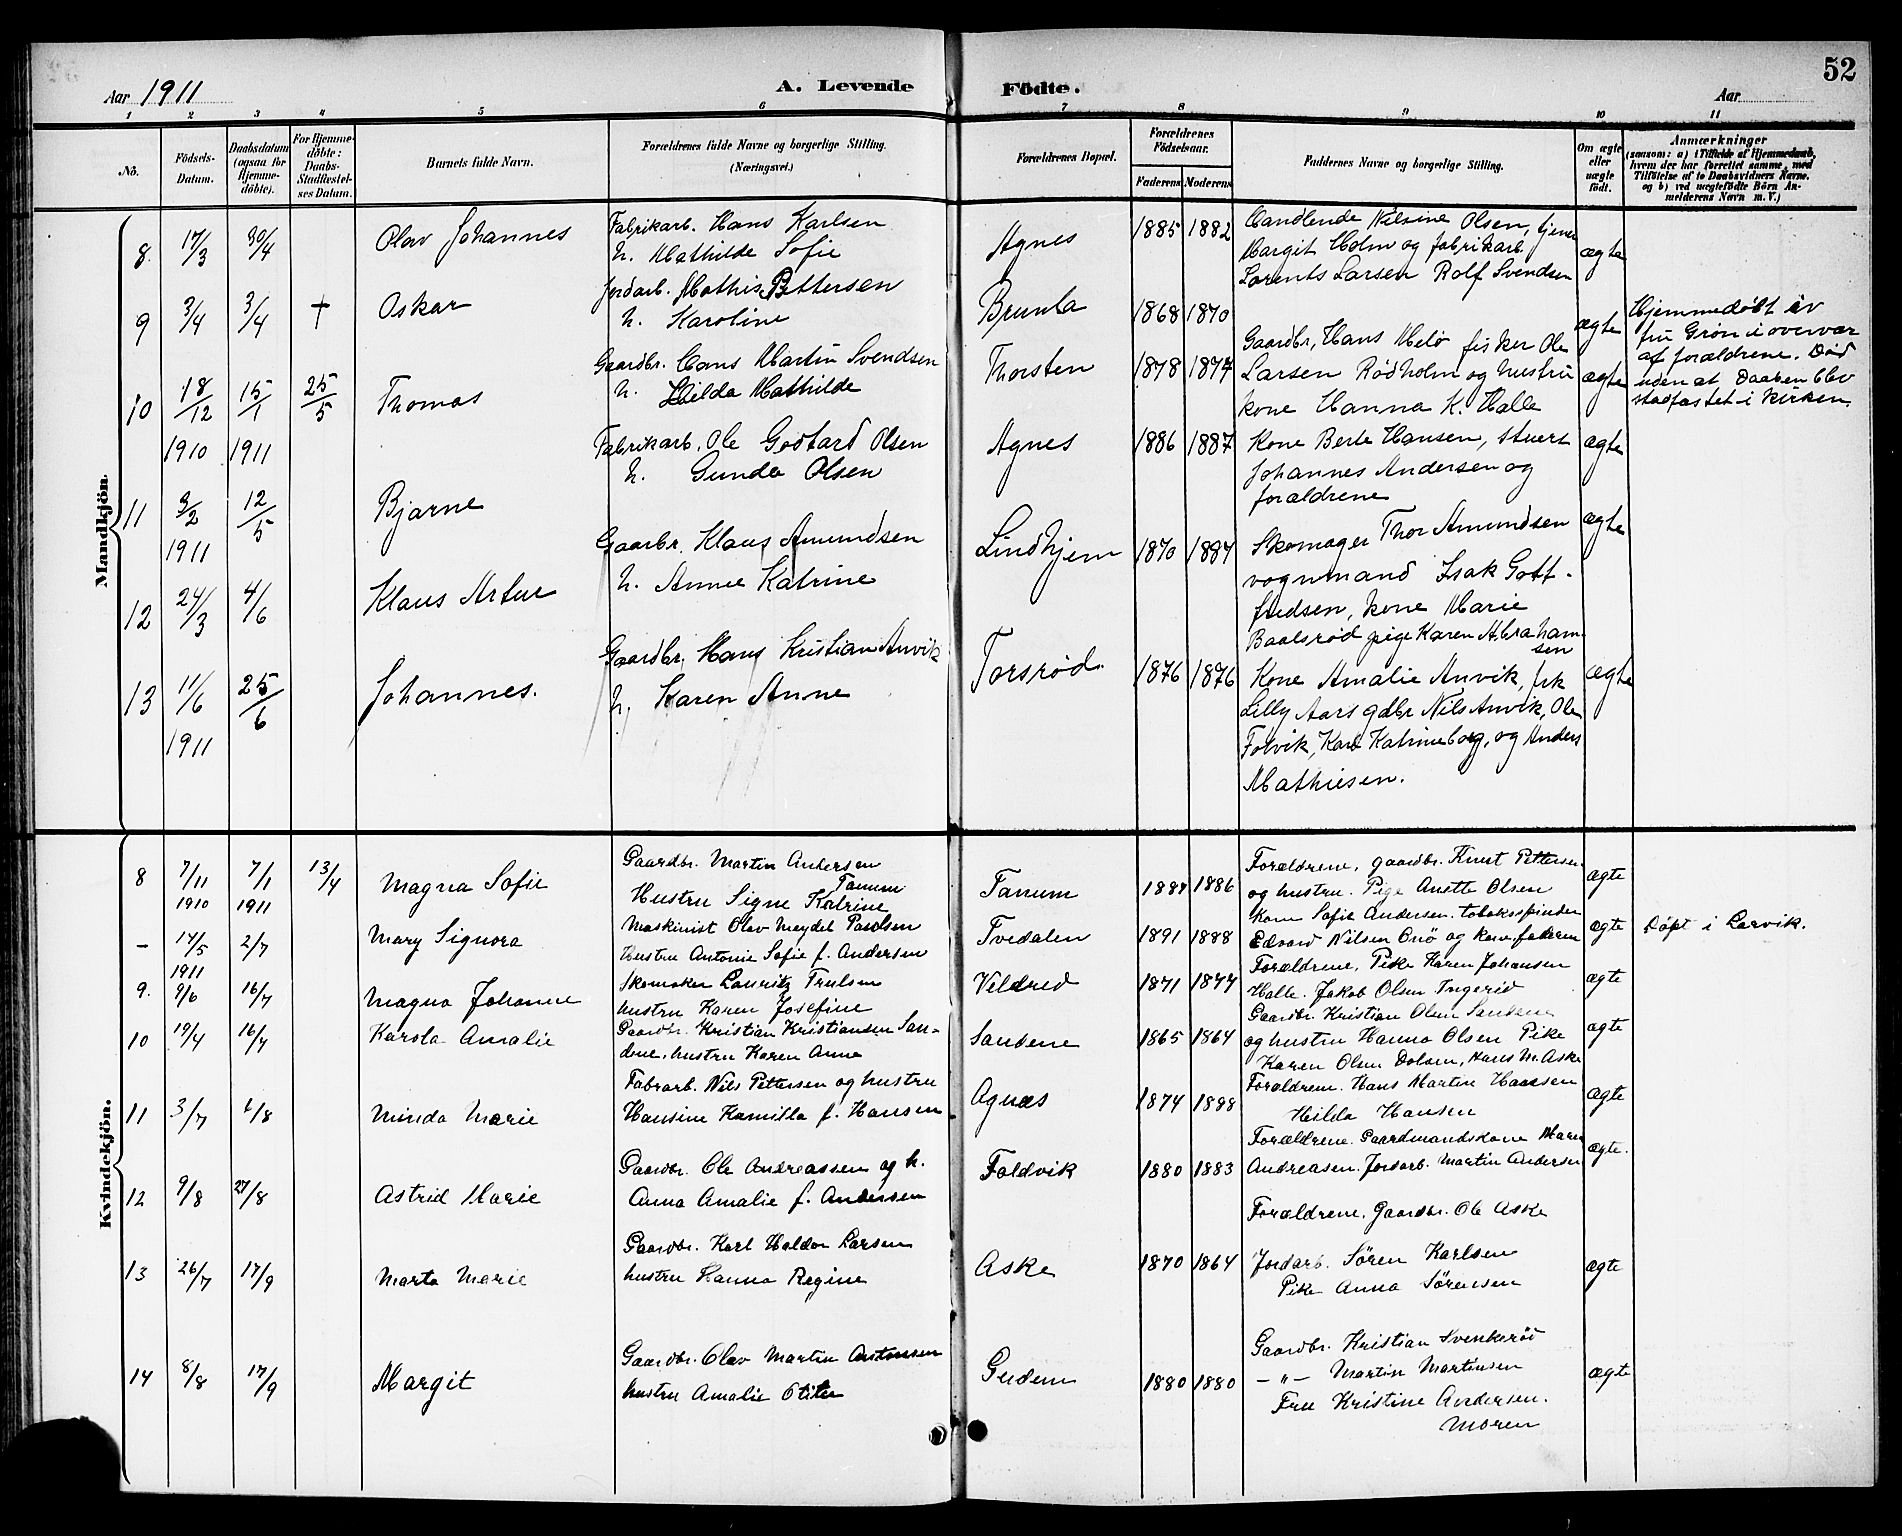 Aar 1911
A. Levende
Födte.
Aar
52
1 2 3 4 5 6 7 8 9 10 11
No.
Födsels-
Datum.
Daabsdatum
(ogsaa för
Hjemme-
döbte).
For Hjemme-
döbte:
Daabs-
Stadfæstel-
ses Datum.
Barnets fulde Navn.
Forældrenes fulde Navne og borgerlige Stilling.
(Næringsvei.)
Forældrenes Bopæl.
Forældrenes
Födselsaar.
Faderens Moderens
Faddernes Navne og borgerlige Stilling.
Om ægte
eller
uægte
födt.
Anmærkninger
(saasom: a) i Tilfælde af Hjemmedaab,
hvem der har forrettet samme, med
Tilföielse af to Daabsvidners Navne.
og b) ved uægtefödte Börn An-
melderens Navn m. V.)
Mandkjön.
8. 17/3 30/4 Olav Johannes
Fabrikarb. Hans Karlsen
h. Mathilde Sofie
Agnes 1885 1882
Handlende Nilsine Olsen, tjener
Margit Holm og fabrikarb.
Lorents Larsen Rolf Svendsen
ægte
9 3/4 3/4 † Oskar
Jordarb. Mathis Pettersen
h. Karoline
Brunla 1868 1870
ægte
Hjemmedöbt av
fru Grøn i overvær
af forældrene. Död
uden at Daaben blev
stadfæstet i kirken.
10 18/12 15/1 25/5 Thomas
1910 1911
Gaardbr. Hans Martin Svendsen
h. Hilda Mathilde
Thorsten 1878 1874
Gaardbr, Hans Melö fisker Ole
Larsen Rødholm og hustru
kone Hanna K. Halle
ægte
11 2/2 12/5 Bjarne
1911
Fabrikarb. Ole Godtard Olsen
h. Gunda Olsen
Agnes 1886 1887
Kone Berte Hansen, stuert
Johannes Andersen og
forældrene
ægte
12 24/3 4/6 Klaus Artur
Gaarbr. Klaus Amundsen
h. Anne Katrine
Lindhjem 1870 1884
Skomager Thor Amundsen
vognmand Isak Gott-
fredsen, kone Marie
Baalsrød pige Karen Abraham-
sen
ægte
13 11/6 25/6 Johannes.
1911
Gaardbr, Hans Kristian Anvik
h. Karen Anne
Torsrød. 1876 1876
Kone Amalie Anvik, frk
Lilly Aars gdbr Nils Anvik, Ole
Folvik, Karl Katrineborg, og Anders
Mathiesen.
ægte
Kvindekjön.
8 7/11 7/1 13/4 Magna Sofie
1910 1911
Gaardbr. Martin Andersen
Tanum
Hustru Signe Katrine
Tanum 1884 1886
Forældrene, gaardbr. Knut Pettersen
og hustru. Pige Anette Olsen
ægte
– 14/5 2/7 Mary Signora
1911
Maskinist Olav Meydel Paulsen
Hustru Antonie Sofie f. Andersen
Tvedalen 1891 1888
Kone Sofie Andersen. tobaksspinder
Edvard Nilsen Onö og kone, faderen
ægte Döpt i Larvik.
9. 9/6 16/7 Magna Johanne
Skomaker Lauritz Trulsen
hustru Karen Josefine
Veldred 1871 1877
Forældrene, Pike Karen Johansen
Halle. Jakob Olsen Ingerid
ægte
10 19/4 16/7 Karola Amalie
Gaardbr. Kristian Kristiansen San-
dene, hustru Karen Anne
Sandene 1865 1864
Gaardbr. Kristian Olsen Sandene
og hustru Hanna Olsen Pike
Karen Olsen Dolven, Hans M. Aske
ægte
11 3/7 6/8 Minda Marie
Fabrarb. Nils Pettersen og hustru
Hansine Kamilla f. Hansen
Agnes 1874 1888
Forældrene. Hans Martin Hansen
Hilda Hansen
ægte
12 9/8 27/8 Astrid Marie
Gaardbr. Ole Andreassen og h.
Anna Amalie f. Andersen
Foldvik 1880 1883
Forældrene. Gaardmandskone Maren
Andreasen. Jordarb. Martin Andersen
ægte.
13 26/7 17/9 Marta Marie
Gaardbr. Karl Haldor Larsen
hustru Hanna Regine
Aske 1870 1864
Forældrene, Gaardbr. Ole Aske
Jordarb. Sören Karlsen
Pike Anna Sörensen
ægte
14 8/8 17/9 Margit
Gaardbr. Olav Martin Antonsen
hustru Amalie Otilie
Gudem 1880 1880
Gaardbr. Kristian Svenkeröd
– „ – Martin Martinsen
Fru Kristine Andersen.
Moren
ægte